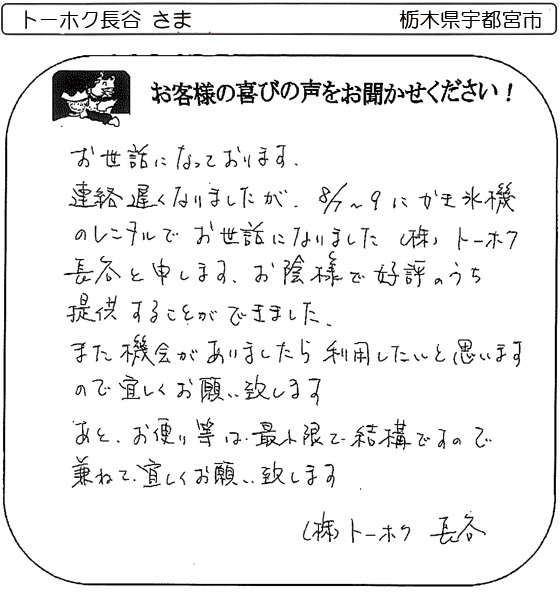 トーホク長谷 さま 栃木県宇都宮市
お客様の喜びの声をお聞かせください！
お世話になっております.
連絡遅くなりましたが、8/7~9にかき氷機
のレンタルでお世話になりました(株)トーホク
長谷と申します、お陰様で好評のうち
提供することができました、
また機会がありましたら利用したいと思います
ので宜しくお願い致します
あと、お便り等は最小限で結構ですので
兼ねて宜しくお願い致します
(株)トーホク 長谷